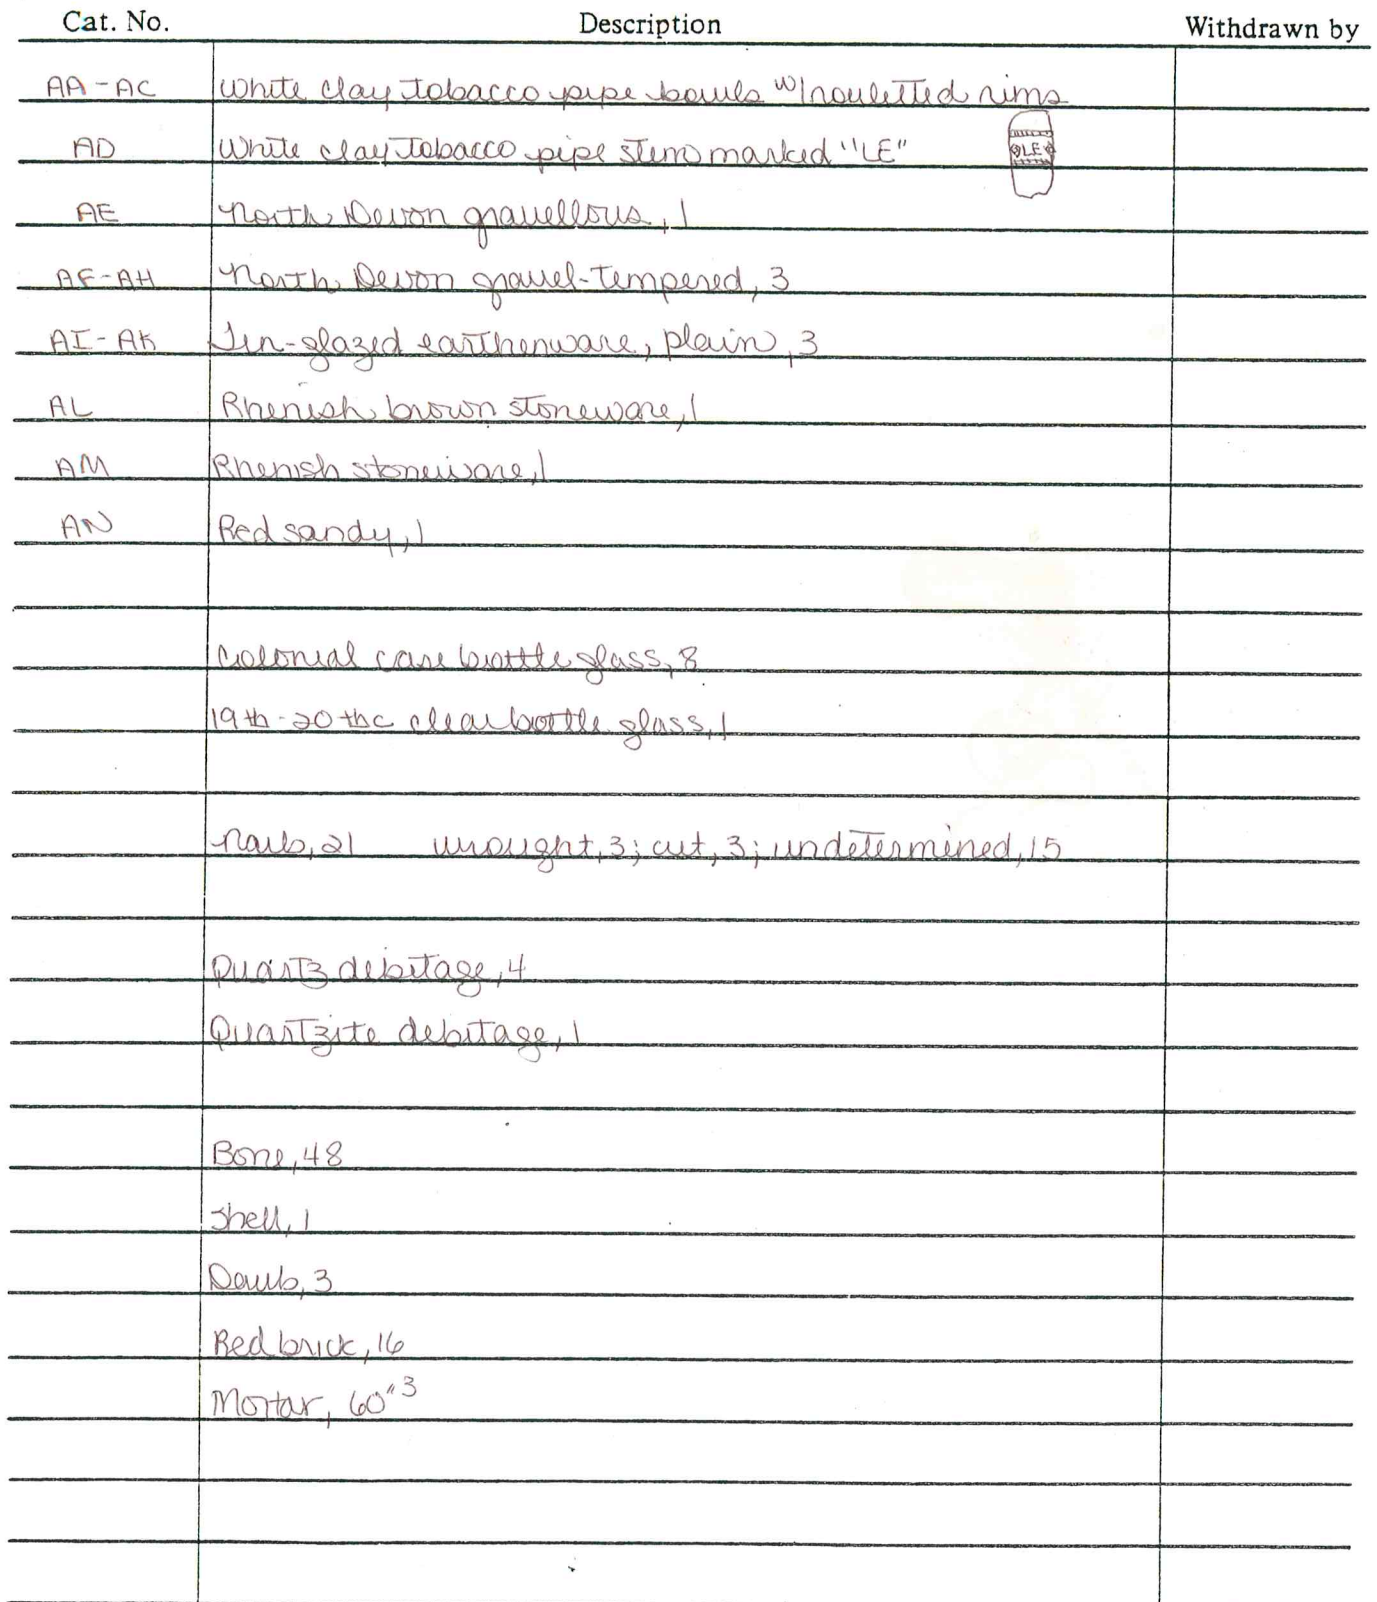 Cat. No. Description Withdrawn by
AA-AC White clay tobacco pipe bowls w/rouletted rims
AD White clay tobacco pipe stem marked "LE" LE
AE North Devon gravellous, 1
AF-AH North Devon gravel-tempered, 3
AI-AK Tin-glazed earthenware, plain, 3
AL Rhenish brown stoneware, 1
AM Rhenish stoneware, 1
AN Red sandy, 1
Colonial case bottle glass, 8
19th-20thc clear bottle glass, 1
Nails, 21 wrought, 3; cut, 3; undetermined, 15
Quartz debitage, 4
Quartzite debitage, 1
Bone, 48
Shell, 1
Daub, 3
Red brick, 16
Mortar, 60"3